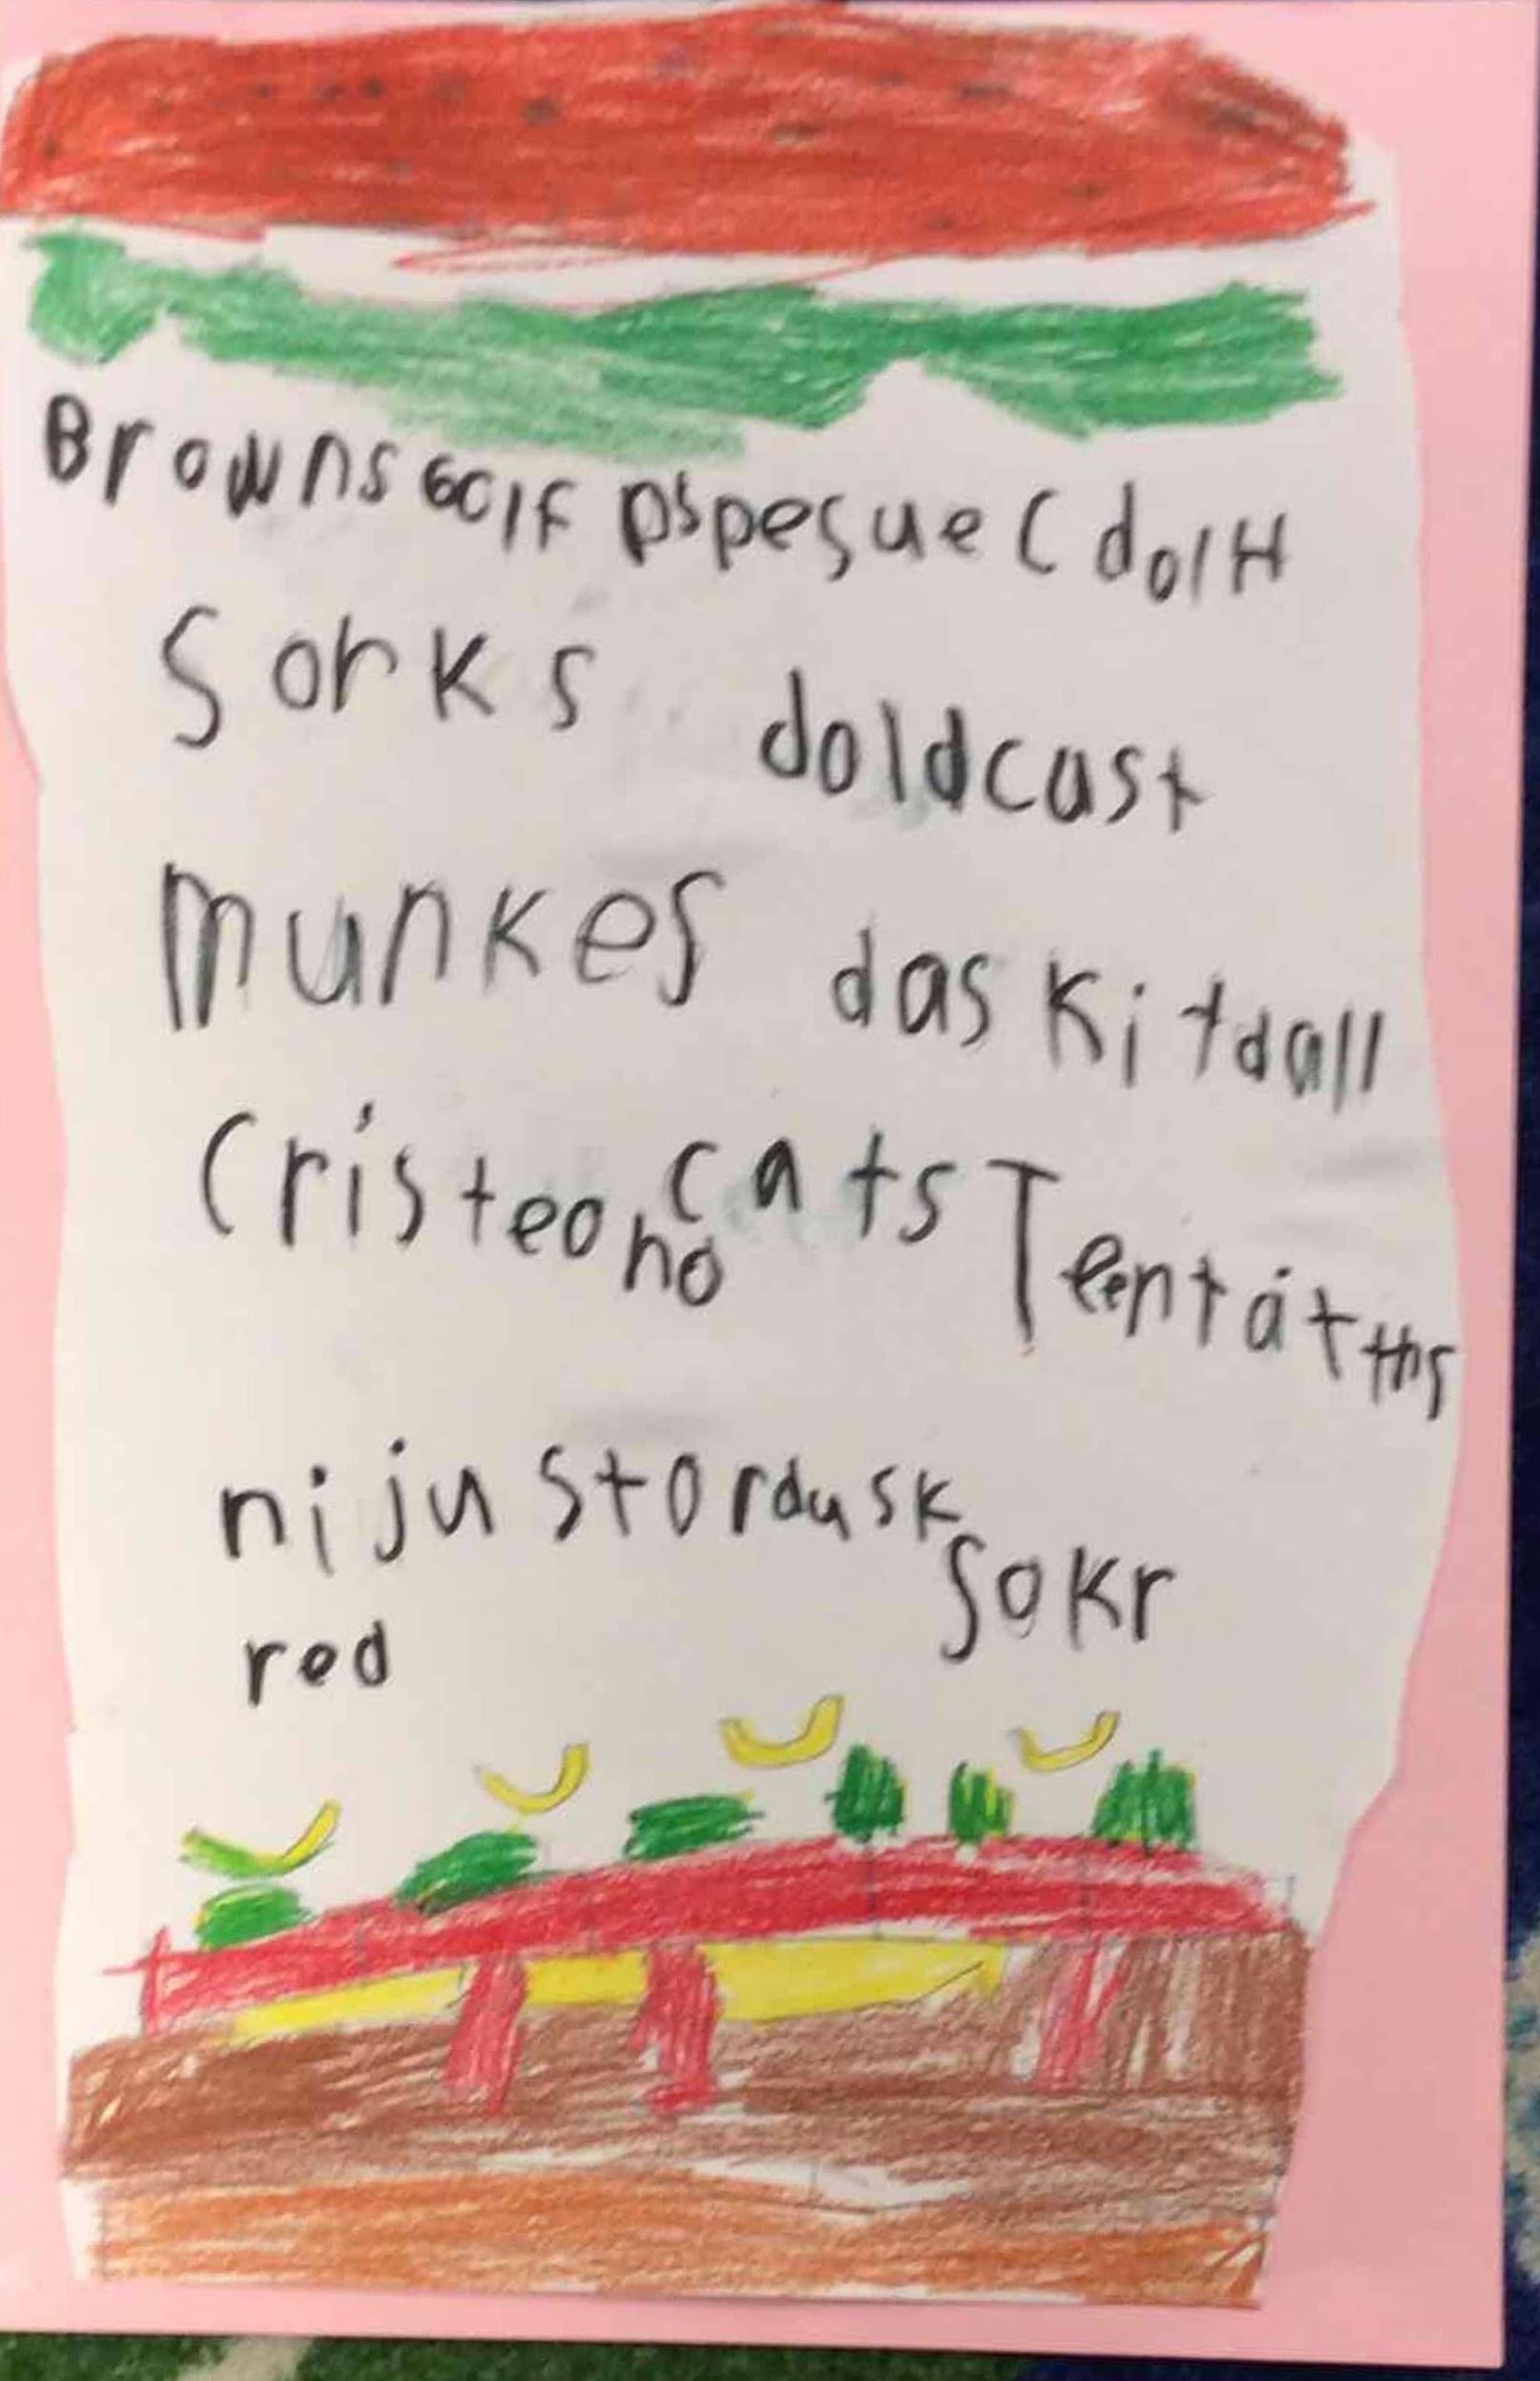 Browns GOlf pspesue C dolH
Sorks doldcast
munkes daskitdall
Cristeono cats Tentatths
nijustordusk
red sokr